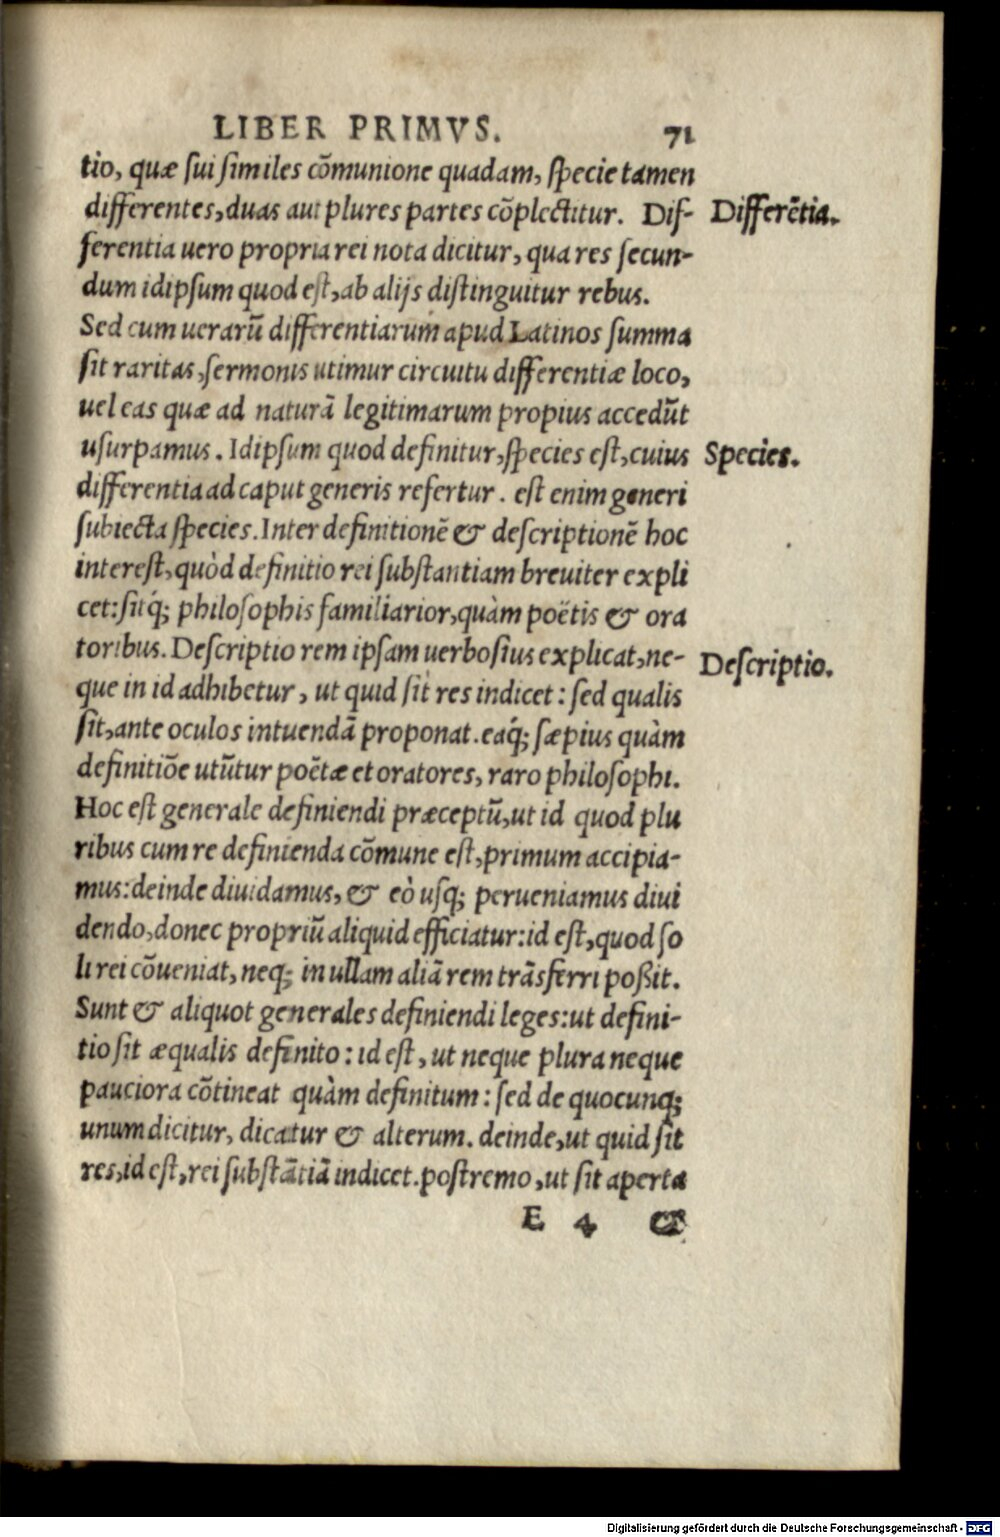 LIBER PRIMVS. 71
tio, quæ sui similes cõmunione quadam, specie tamen
differentes, duas aut plures partes cõplectitur. Dif-
Differẽtia.
ferentia uero propria rei nota dicitur, qua res secun-
dum idipsum quod est, ab alijs distinguitur rebus.
Sed cum uerarũ differentiarum apud Latinos summa
sit raritas, sermonis utimur circuitu differentiæ loco,
uel eas quæ ad naturã legitimarum propius accedũt
usurpamus. Idipsum quod definitur, species est, cuius
Species.
differentia ad caput generis refertur. est enim generi
subiecta species. Inter definitionẽ & descriptionẽ hoc
interest, quòd definitio rei substantiam breuiter expli
cet: sitq́; philosophis familiarior, quàm poëtis & ora
toribus. Descriptio rem ipsam uerbosius explicat, ne-
Descriptio.
que in id adhibetur, ut quid sit res indicet: sed qualis
sit, ante oculos intuendã proponat. eaq́; sæpius quàm
definitiõe utũtur poẽtæ et oratores, raro philosophi.
Hoc est generale definiendi præceptũ, ut id quod plu
ribus cum re definienda cõmune est, primum accipia-
mus: deinde diuidamus, & eò usq; perueniamus diui
dendo, donec propriũ aliquid efficiatur: id est, quod so
li rei cõueniat, neq; in ullam aliã rem trãsferri poßit.
Sunt & aliquot generales definiendi leges: ut defini-
tio sit æqualis definito: id est, ut neque plura neque
pauciora cõtineat quàm definitum: sed de quocunq;
unum dicitur, dicatur & alterum. deinde, ut quid sit
res, id est, rei substãtiã indicet. postremo, ut sit aperta
E 4 &
Digitalisierung gefördert durch die Deutsche Forschungsgemeinschaft - DFG